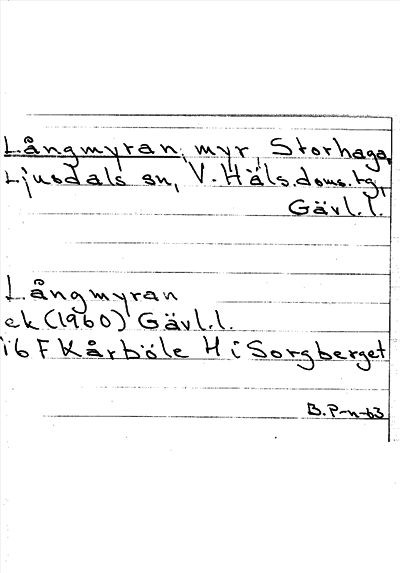 Långmyran, myr, Storhaga,
Ljusdals sn, V. Häls. doms. tg,
Gävl.l.
Långmyran
ek (1960) Gävl.l.
16 F Kårböle H i Sorgberget
B. P-n-63